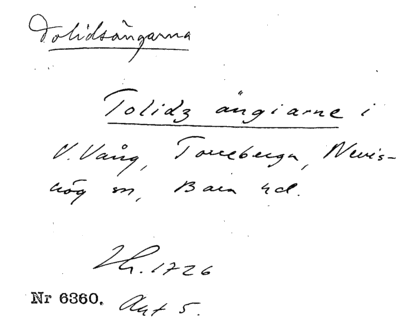 Tolidsängarna
Tolidz ängiarne i
V. Vång, Torreberga, Nevis-
hög sn, Bara hd.
Lh. 1726
Nr 6360. Akt 5.